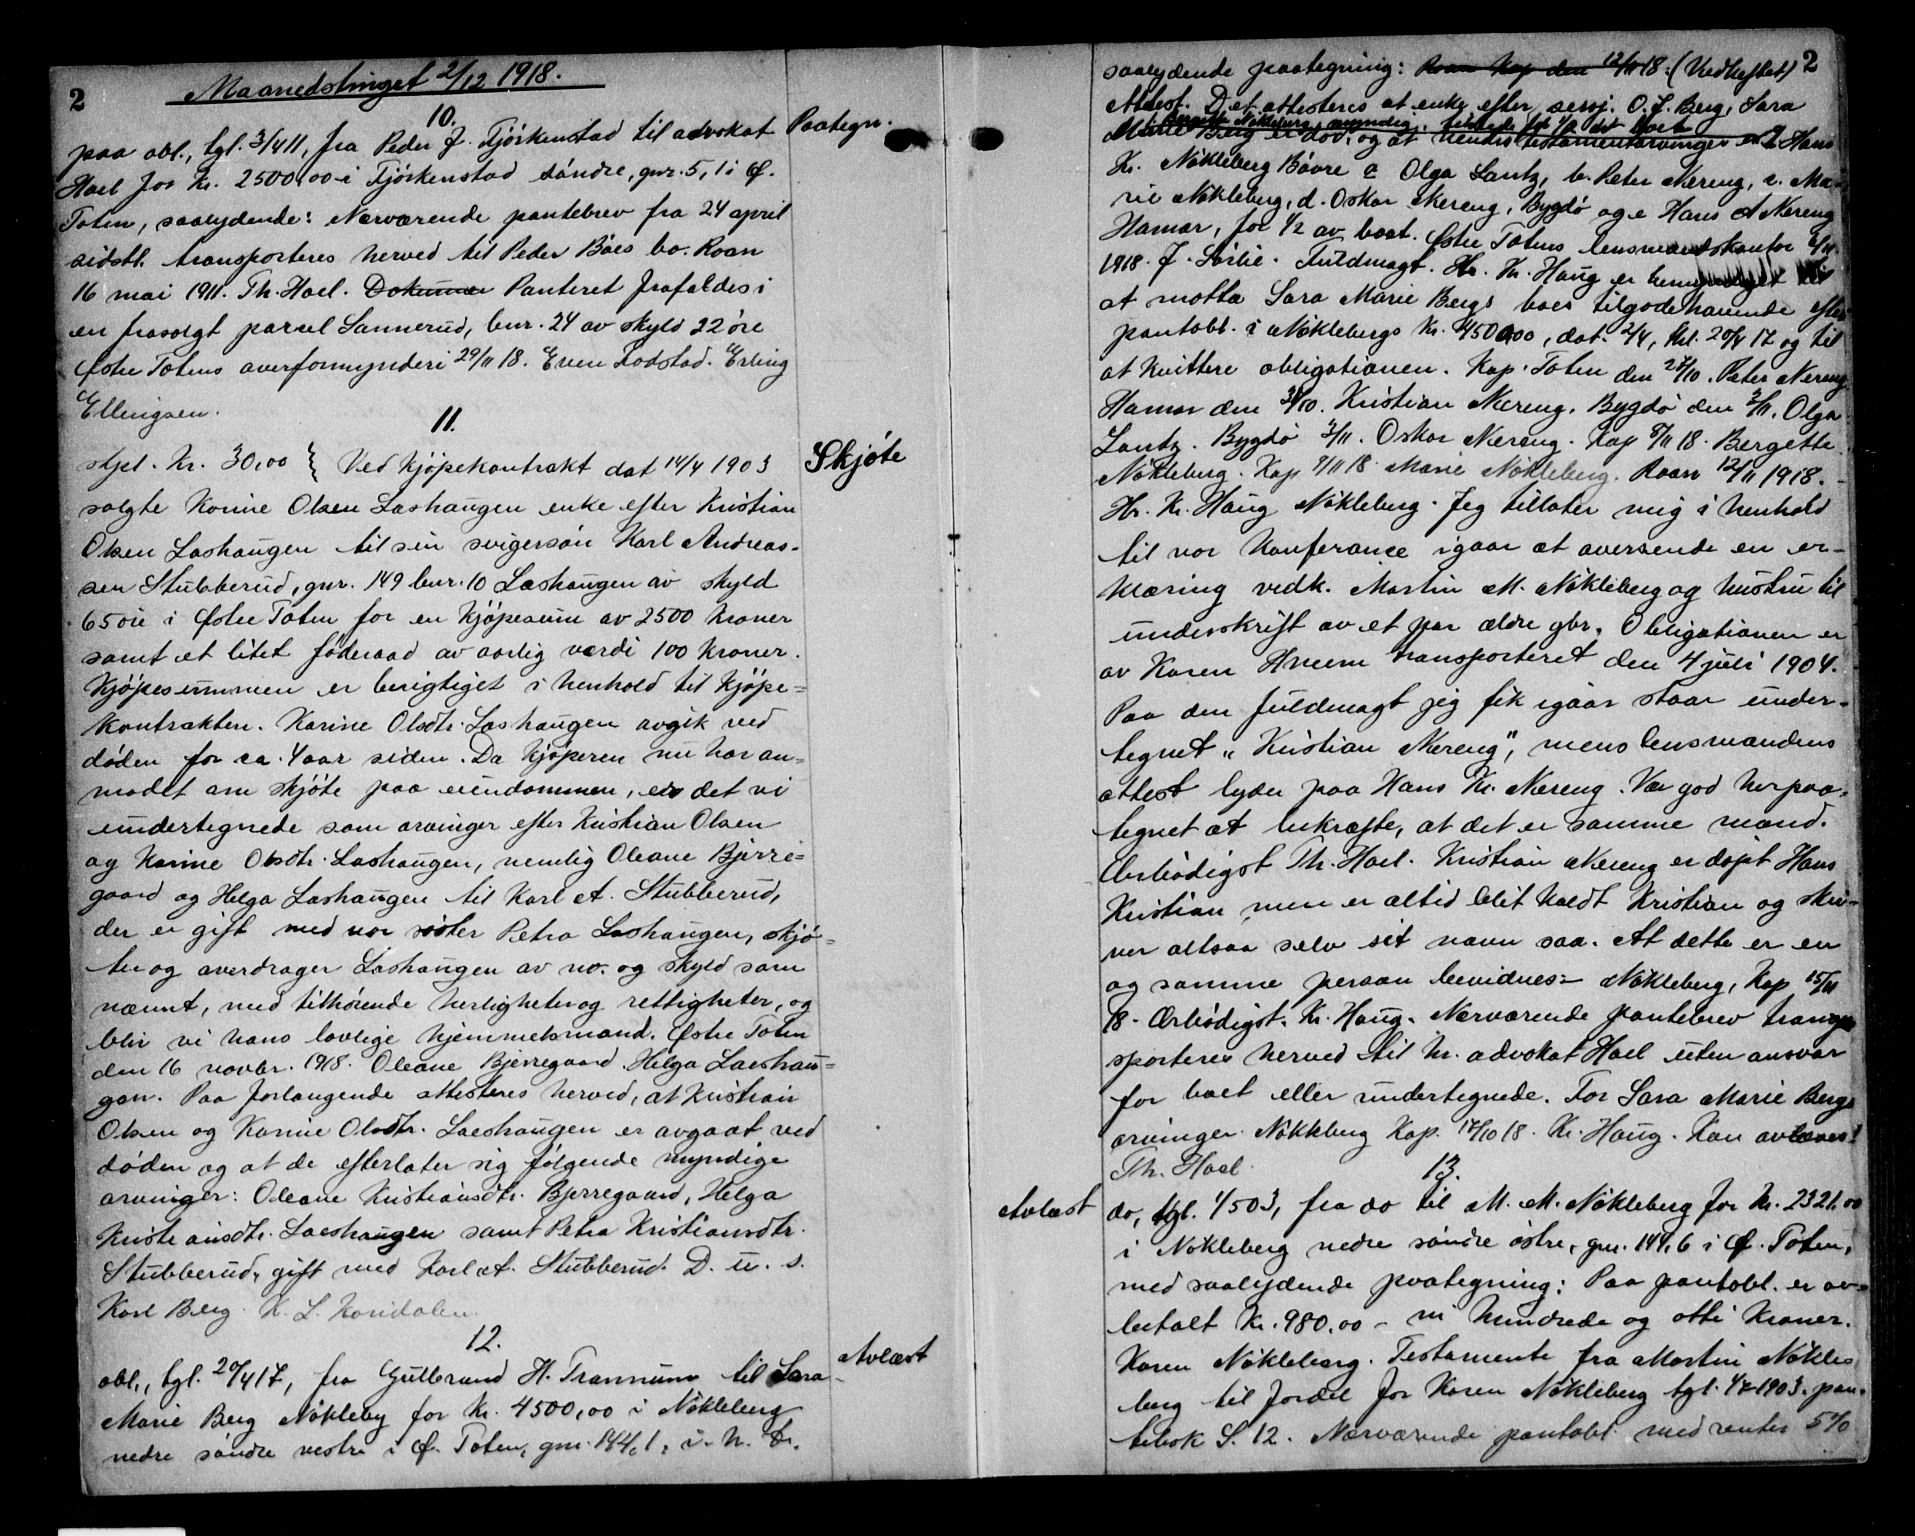 2
Maanedstinget 2/12 1918.
10.
paa obl., tgl. 3/4 11, fra Peder J. Fjörkenstad til advokat
Paategn.
Hoel for Kr. 2500,00 i Fjörkenstad söndre, gnr. 5, 1 i Ø.
Toten, saalydende: Nærværende pantebrev fra 24 april
sidstl. transporteres herved til Peder Böes bo. Roan
16 mai 1911. Th. Hoel. Dokumen Panteret frafaldes i
en frasolgt parcel Sannerud, bnr. 24 av skyld 22 öre
Østre Totens overformynderi 29/11 18. Even Fodstad. Erling
Ellingsen.
11.
stpl. Kr. 30,00 } Ved kjöpekontrakt dat 14/4 1903
Skjöte
solgte Karine Olsen Lashaugen enke efter Kristian
Olsen Lashaugen til sin svigersön Karl Andreas-
sen Stubberud, gnr. 149 bnr. 10 Lashaugen av skyld
65 öre i Østre Toten for en kjöpesum av 2500 kroner
samt et litet föderaad av aarlig værdi 100 kroner.
Kjöpesummen er berigtiget i henhold til kjöpe=
kontrakten. Karine Olsdtr. Lashaugen avgik ved
döden for ca. 4 aar siden. Da kjöperen nu har an=
modet om skjöte paa eiendommen, er det vi
undertegnede som arvinger efter Kristian Olsen
og Karine Olsdtr. Lashaugen, nemlig Oleane Bjerre=
gaard og Helga Lashaugen til Karl A. Stubberud,
der er gift med vor söster Petra Lashaugen, skjö=
ter og overdrager Lashaugen av no. og skyld som
nævnt, med tilhörende herligheter og rettigheter, og
blir vi hans lovlige hjemmelsmænd. Østre Toten
den 16 novbr. 1918. Oleane Bjerregaard Helga Laeshau=
gen. Paa forlangende attesteres herved, at Kristian
Olsen og Karine Olsdtr. Laeshaugen er avgaat ved
döden og at de efterlater sig fölgende myndige
arvinger: Oleane Kristiansdtr. Bjerregaard, Helga
Kristiansdtr. Laeshaugen samt Petra Kristiansdtr.
Stubberud, gift med Karl A. Stubberud. D. u. s.
Karl Berg. K. L. Koridalen.
12.
obl., tgl. 20/4 17, fra Gulbrand H. Trannum til Sara
Avlæst
Marie Berg Nökleby for Kr. 4500,00 i Nökleberg
nedre söndre vestre i Ø. Toten, gnr. 144, 1,
saalydende paategning: Roan Kap den 12/11 18. (Vedheftet) 2
Attest. Det attesteres at enke efter sersj. O. J. Berg, Sara
Bergette Nökleberg, myndig,
Marie Berg er död, og at hendes testamentarvinger er Hans
Kr. Nökleberg Bövre a Olga Lantz, b. Peter Nereng, c. Ma-
rie Nökleberg, d. Oskar Nereng, Bygdö og e Hans K Nereng
Hamar, for 1/2 av boet. Østre Totens lensmandskontor 6/11
1918. J. Sörlie. Fuldmagt. Hr. Kr. Haug er bemyndiget til
at motta Sara Marie Bergs boes tilgodehavende efter
pantobl. i Nöklebergs Kr. 4500,00, dat. 2/4, tgl. 20/4 17 og til
at kvittere obligationen. Kap Toten den 28/10. Peter Nereng
Hamar den 31/10. Kristian Nereng. Bygdö den 3/11. Olga
Lantz. Bygdö 3/11. Oskar Nereng. Kap 8/11 18. Bergette
Nökleberg. Kap 8/11 18 Marie Nökleberg. Roan 12/11 1918.
Hr. Kr. Haug Nökleberg. Jeg tillater mig i henhold
til vor konferance igaar at oversende en er-
klæring vedk. Martin M. Nökleberg og hustru til
underskrift av et par ældre gbr. Obligationen er
av Karen Hveem transporteret den 4 juli 1904.
Paa den fuldmagt jeg fik igaar staar under-
tegnet „Kristian Nereng", mens lensmandens
attest lyder paa Hans Kr. Nereng. Vær god herpaa-
tegnet at bekræfte, at det er samme mand.
Ærbödigst Th. Hoel. Kristian Nereng er döpt Hans
Kristian men er altid blit kaldt Kristian og skri-
ver altsaa selv sit navn saa. At dette er en
og samme person bevidnes – Nökleberg, Kap 15/11
18 – Ærbödigst. Kr. Haug. Nærværende pantebrev tran-
sporteres herved til hr. advokat Hoel uten ansvar
for boet eller undertegnede. For Sara Marie Bergs
arvinger. Nökkleberg Kap. 17/10 18. Kr. Haug. Kan avlæses!
Th. Hoel.
13.
Avlæst
do, tgl. 1/5 03, fra do til M. M. Nökleberg for Kr. 2321.00
i Nökleberg nedre söndre östre, gnr. 144, 6 i Ø. Toten,
med saalydende paategning: Paa pantobl. er av-
betalt Kr. 980.00 – ni hundrede og otti kroner.
Karen Nökleberg. Testamente fra Martin Nökle=
berg til fordel for Karen Nökleberg tgl. 1/7 1903. pan-
tebok S. 12. Nærværende pantobl. med renter 5%